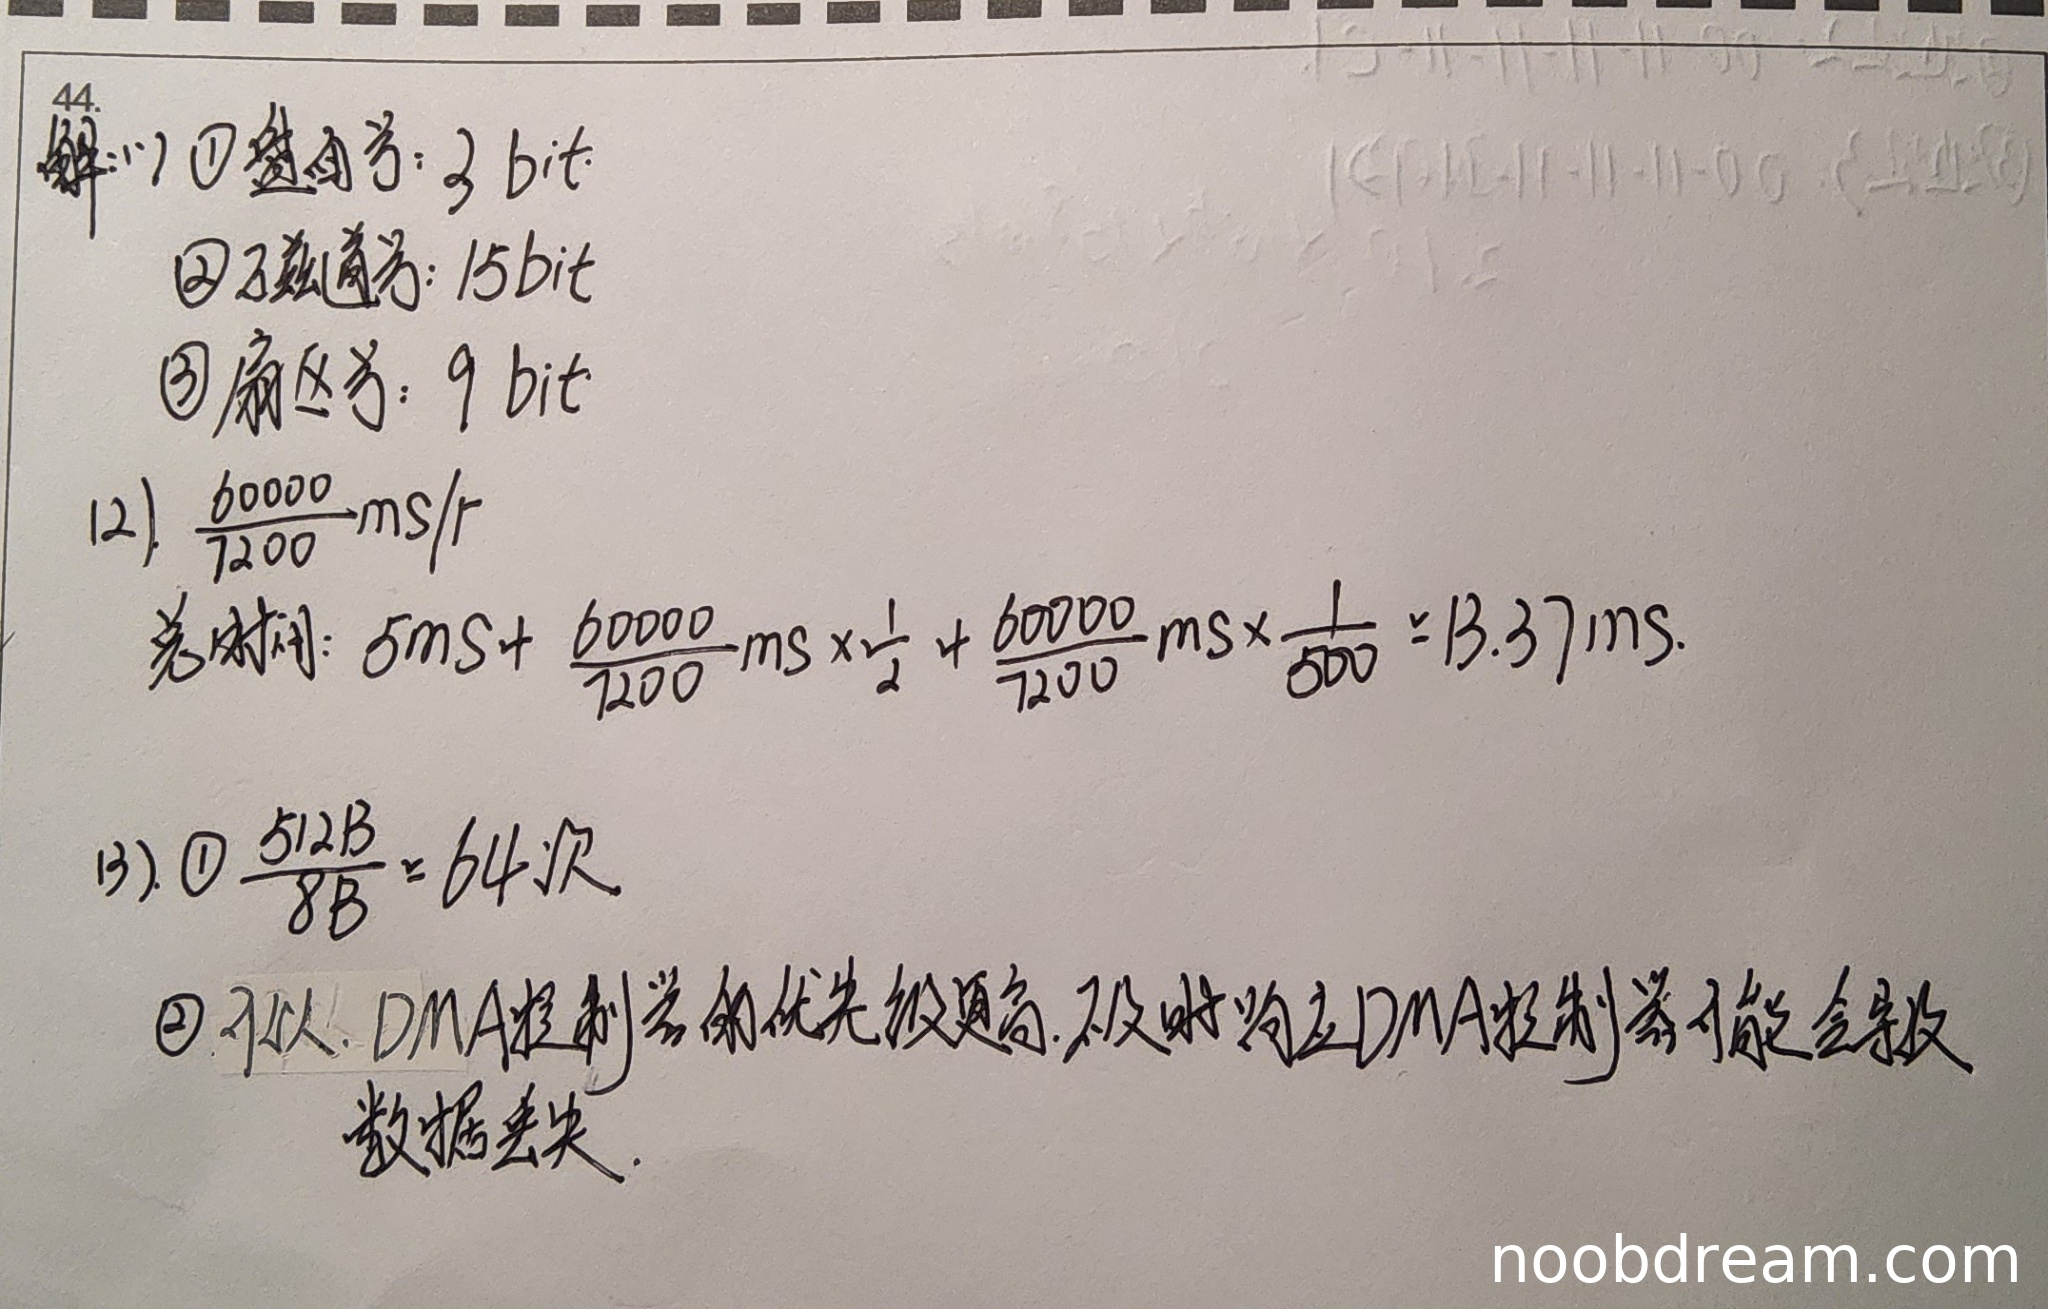 44.
解:(1) ①盘面号: 3 bit.
②磁道号: 15bit
③扇区号: 9 bit.
(2). 60000/7200 ms/r
总时间: 5ms + 60000/7200 ms × 1/2 + 60000/7200 ms × 1/500 = 13.37ms.
(3). ① 512B/8B = 64次
②.可以. DMA控制器的优先级更高.不及时响应DMA控制器可能会导致
数据丢失.
noobdream.com